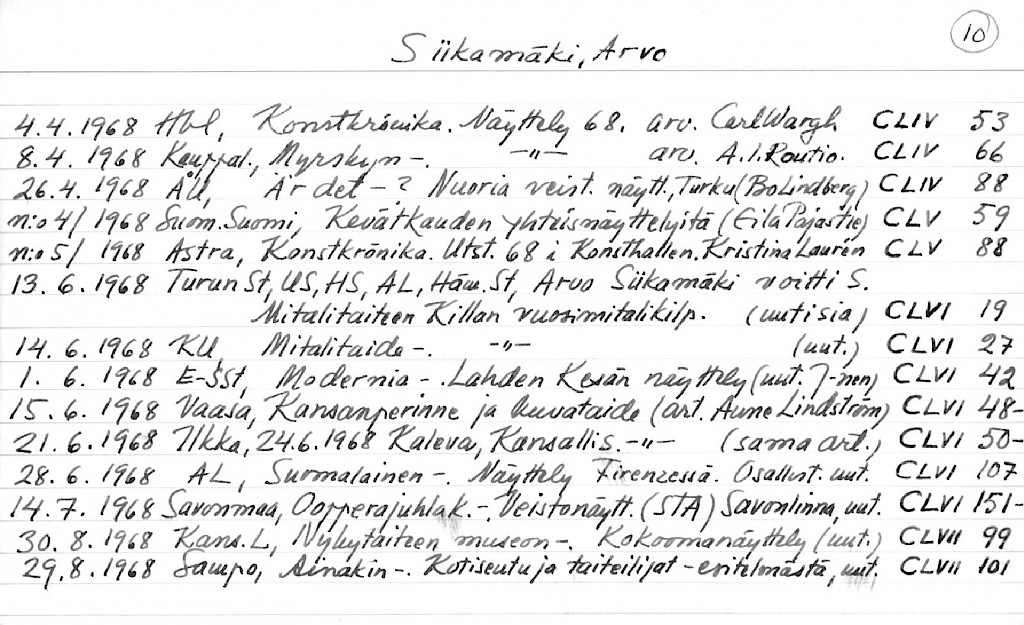 10
Siikamäki, Arvo
4.4.1968 Hbl, Konstkrönika. Näyttely 68. arv. Carl Wargh CLIV 53
8.4.1968 Kauppal., Myrskyn -. -"- arv. A.I. Routio. CLIV 66
26.4.1968 ÅU, Är det - ? Nuoria veist. näytt., Turku (Bo Lindberg) CLIV 88
n:o 4/1968 Suom. Suomi, Kevätkauden yhteisnäyttelyitä (Eila Pajastie) CLV 59
n:o 5/1968 Astra, Konstkrönika. Utst. 68 i Konsthallen. Kristina Laurén CLV 88
13.6.1968 Turun St, US, HS, AL, Häm. St, Arvo Siikamäki voitti S.
Mitalitaiteen Killan vuosimitalikilp. (uutisia) CLVI 19
14.6.1968 KU, Mitalitaide -. -"- (uut.) CLVI 27
1.6.1968 E-SSt, Modernia -. Lahden Kesän näyttely (uut. J-nen) CLVI 42
15.6.1968 Vaasa, Kansanperinne ja kuvataide (art. Aune Lindström) CLVI 48-
21.6.1968 Ilkka, 24.6.1968 Kaleva, Kansallis. -"- (sama art.) CLVI 50-
28.6.1968 AL, Suomalainen -. Näyttely Firenzessä. Osallist. uut. CLVI 107
14.7.1968 Savonmaa, Oopperajuhlak. -. Veistonäytt. (STA) Savonlinna, uut. CLVI 151-
30.8.1968 Kans. L, Nykytaiteen museon -. Kokoomanäyttely (uut.) CLVII 99
29.8.1968 Sampo, Ainakin -. Kotiseutu ja taiteilijat - esitelmästä, uut. CLVII 101